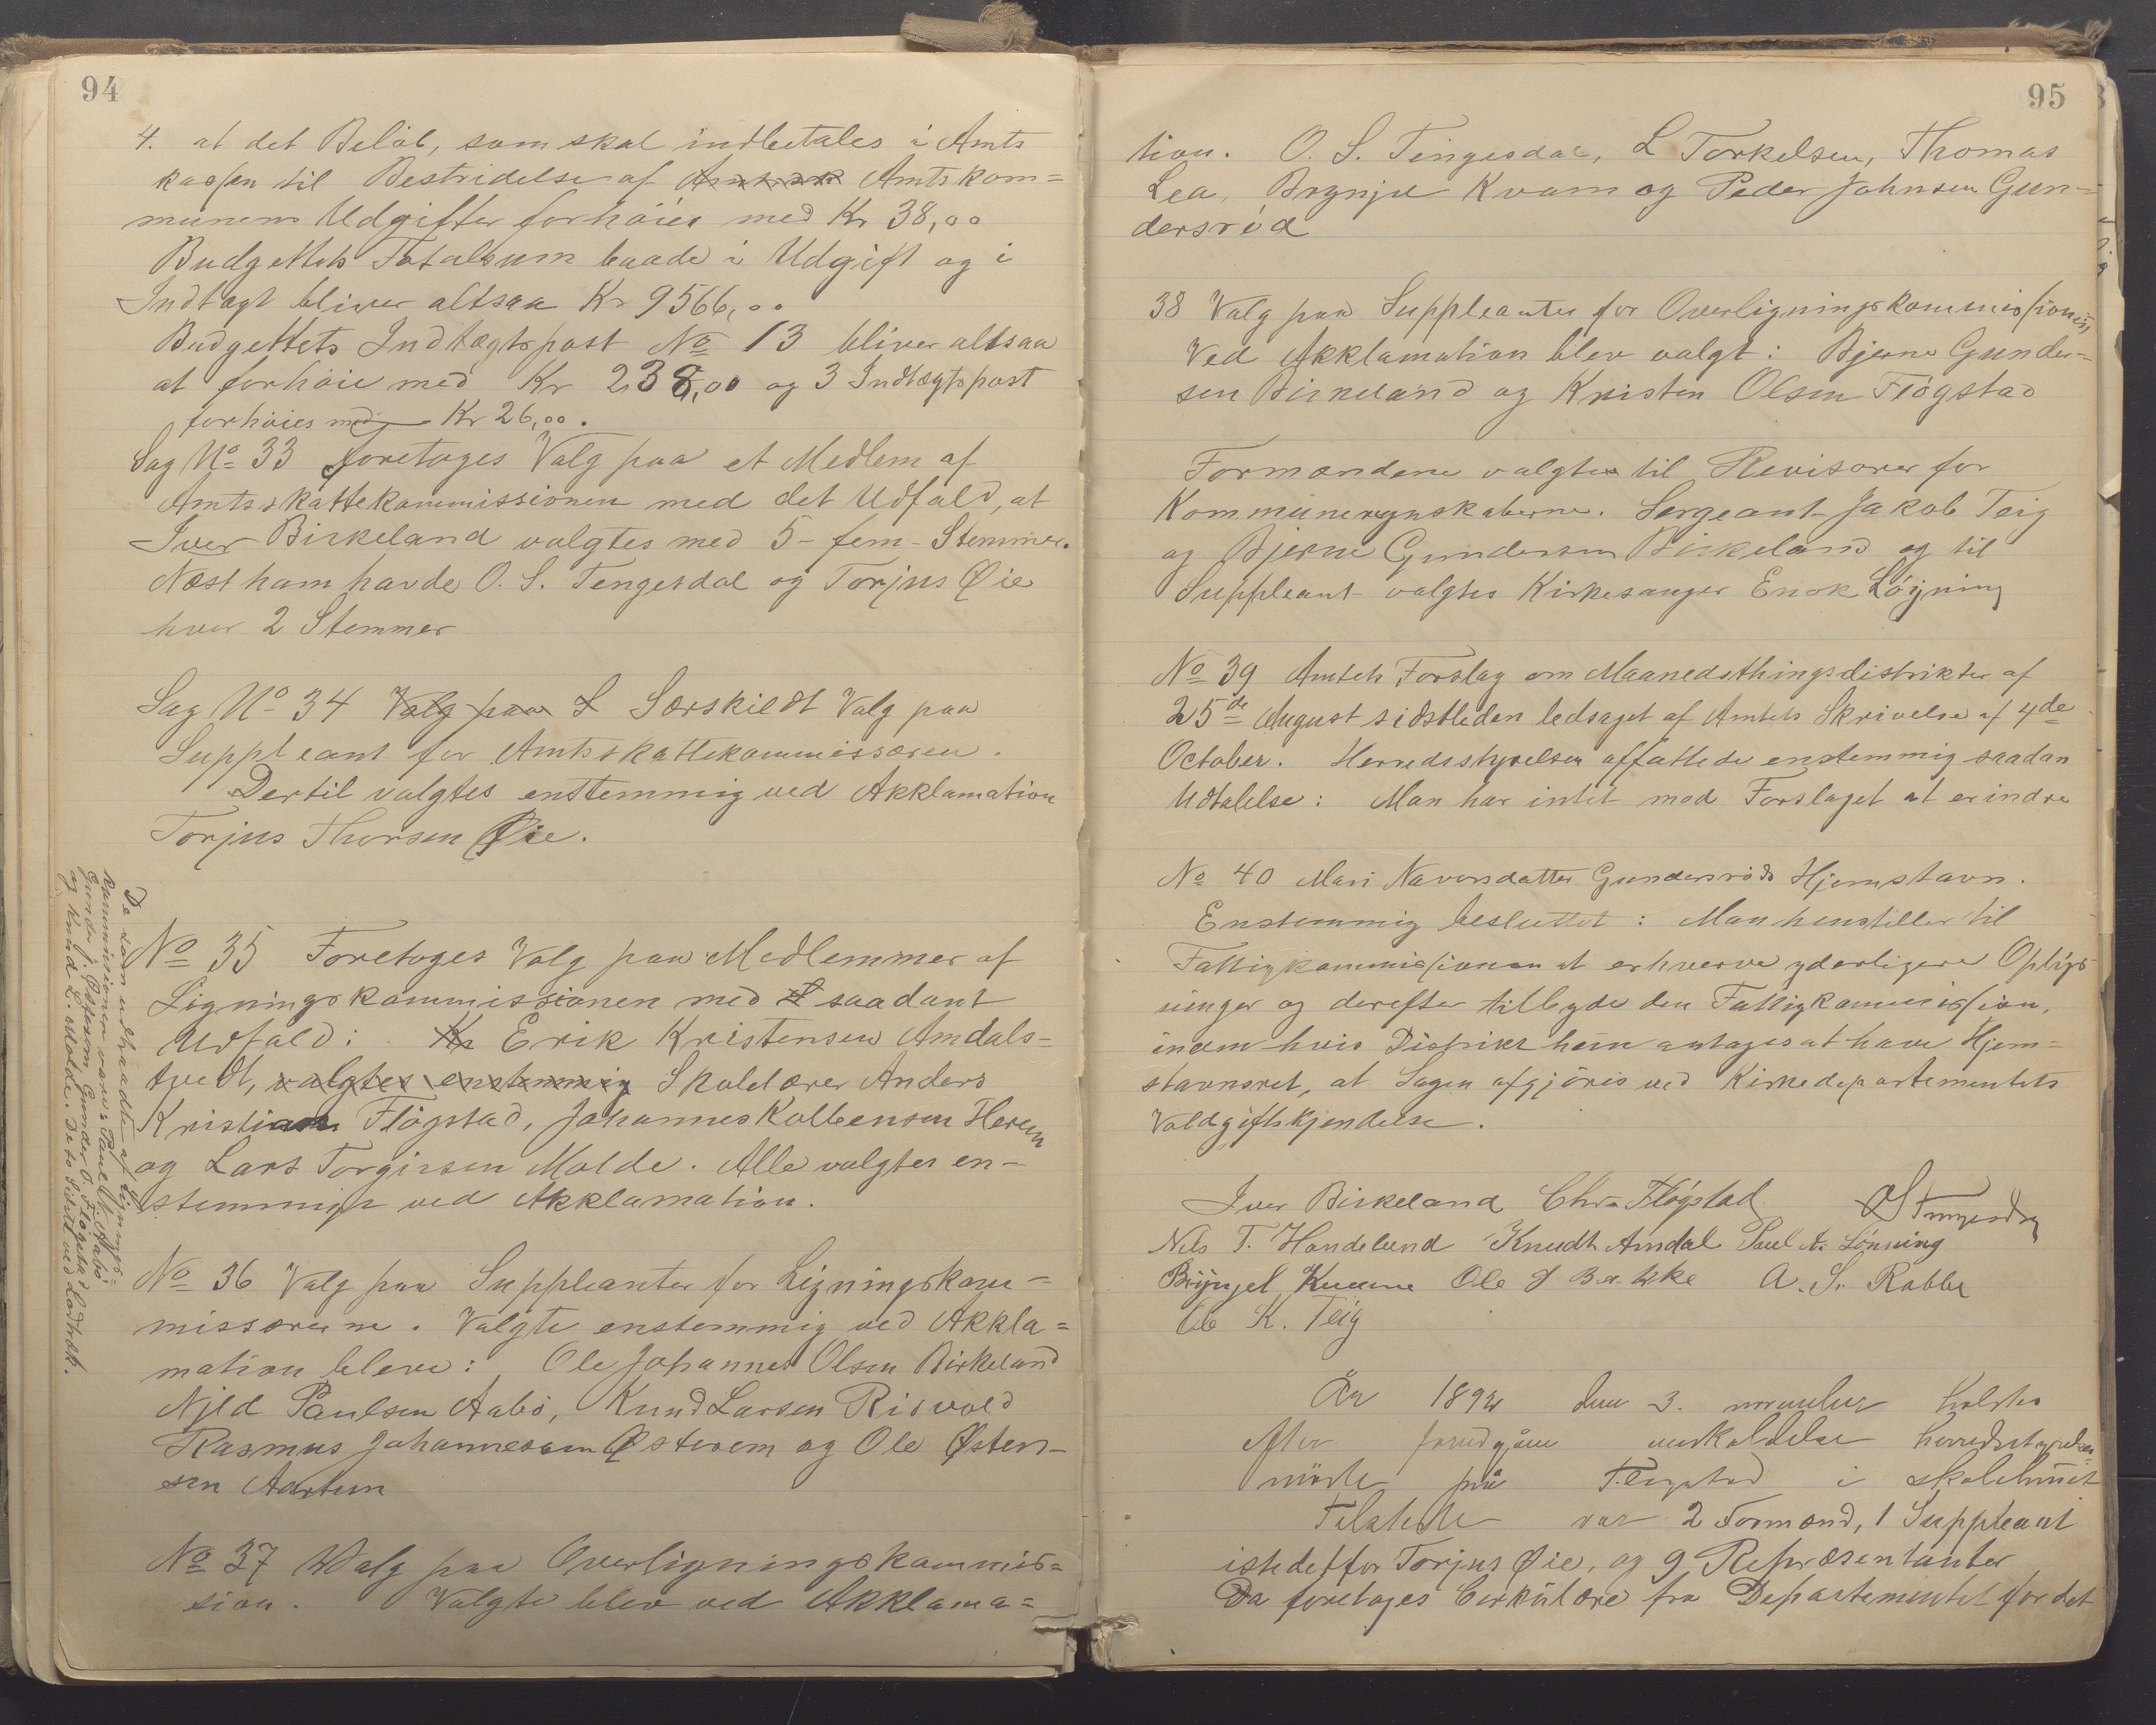 94
4. at det Beløb, som skal indbetales i Amts
kassen til Bestridelse af Amtskom=
munens Udgifter forhøies med Kr 38,00
Budgettets Totalsum baade i Udgift og i
Indtægt bliver altsaa Kr 9566,00
Budgettets Indtægtspost No 13 bliver altsaa
at forhøie med Kr 238,00 og 3 Indtægtspost
forhøies med Kr 26,00.
Sag No 33 foretoges Valg paa et Medlem af
Amtsskattekommissionen med det Udfald, at
Iver Birkeland valgtes med 5 - fem - Stemmer.
Næst ham havde O. S. Tengesdal og Torjus Øie
hver 2 Stemmer
Sag No 34 Valg paa S Særskildt Valg paa
Suppleant for Amtsskattekommissæren.
Dertil valgtes enstemmig ved Akklamation
Torjus Thorsen Øie.
No 35 Foretoges Valg paa Medlemmer af
Ligningskommissionen med saadant
Udfald: Kr Erik Kristensen Amdals-
tvedt, valgtes enstemmig Skolelærer Anders
Kristian Fløgstad, Johannes Kolbensen Herem
og Lars Torgirsen Molde. Alle valgtes en-
stemmigt ved Akklamation.
De som udtraadte af Lignings=
kommissionen vare: Paul N. Aabø
Gunder J. Østerem Gunder O. Fløgstad
og Knud L. Molde. De to sidste ved Lodtræk.
No 36 Valg paa Suppleanter for Ligningskom=
missærerne. Valgte enstemmig ved Akkla=
mation bleve: Ole Johannes Olsen Birkeland
Njeld Paulsen Aabø, Knud Larsen Risvold
Rasmus Johannessen Østerem og Ole Østen-
sen Aartun
No 37 Valg paa Overligningskommis=
sion. Valgte blev ved Akklama=
95
tion. O. S. Tengesdal, L Torkelsen, Thomas
Lea, Brynjel Kvam og Peder Johnsen Gun=
dersrød
38 Valg paa Suppleanter for Overligningskommissionen,
Ved Akklamation blev valgt: Bjerne Gunder=
sen Birkeland og Kristen Olsen Fløgstad
Formændene valgtes til Revisorer for
Kommuneregnskaberne. Sergeant Jakob Teig
og Bjerne Gundersen Birkeland og til
Suppleant valgtes Kirkesanger Enok Løyning
No 39 Amtets Forslag om Maanedsthingsdistrikter af
25de August sidstleden ledsaget af Amtets Skrivelse af 4de
October. Herredsstyrelsen affattede enstemmig saadan
Udtalelse: Man har intet mod Forslaget at erindre
No 40 Mari Naversdatter Gundersrøds Hjemstavn.
Enstemmig besluttet: Man henstiller til
Fattigkommissionen at erhverve yderligere Oplys
ninger og derefter tilbyde den Fattigkommission,
inden hvis Distrikt hun antages at have Hjem=
stavnsret, at Sagen afgjøres ved Kirkedepartementets
Voldgiftskjendelse.
Iver Birkeland Chr. Fløgstad
Nils T. Handeland Knudt Amdal Paul A. Lønning
Brynjel Kvamme Ole A. S. Rabbe
Ole K. Teig
År 1892 den 3. november holdtes
efter foregåen indkaldelse herredsstyrelses
møde på Fløgstad i skolehuset
Tilstede var 2 Formænd, 1 Suppleant
istedetfor Torjus Øie, og 9 Repræsentanter
Da foretoges Cirkulære fra Departementet for det